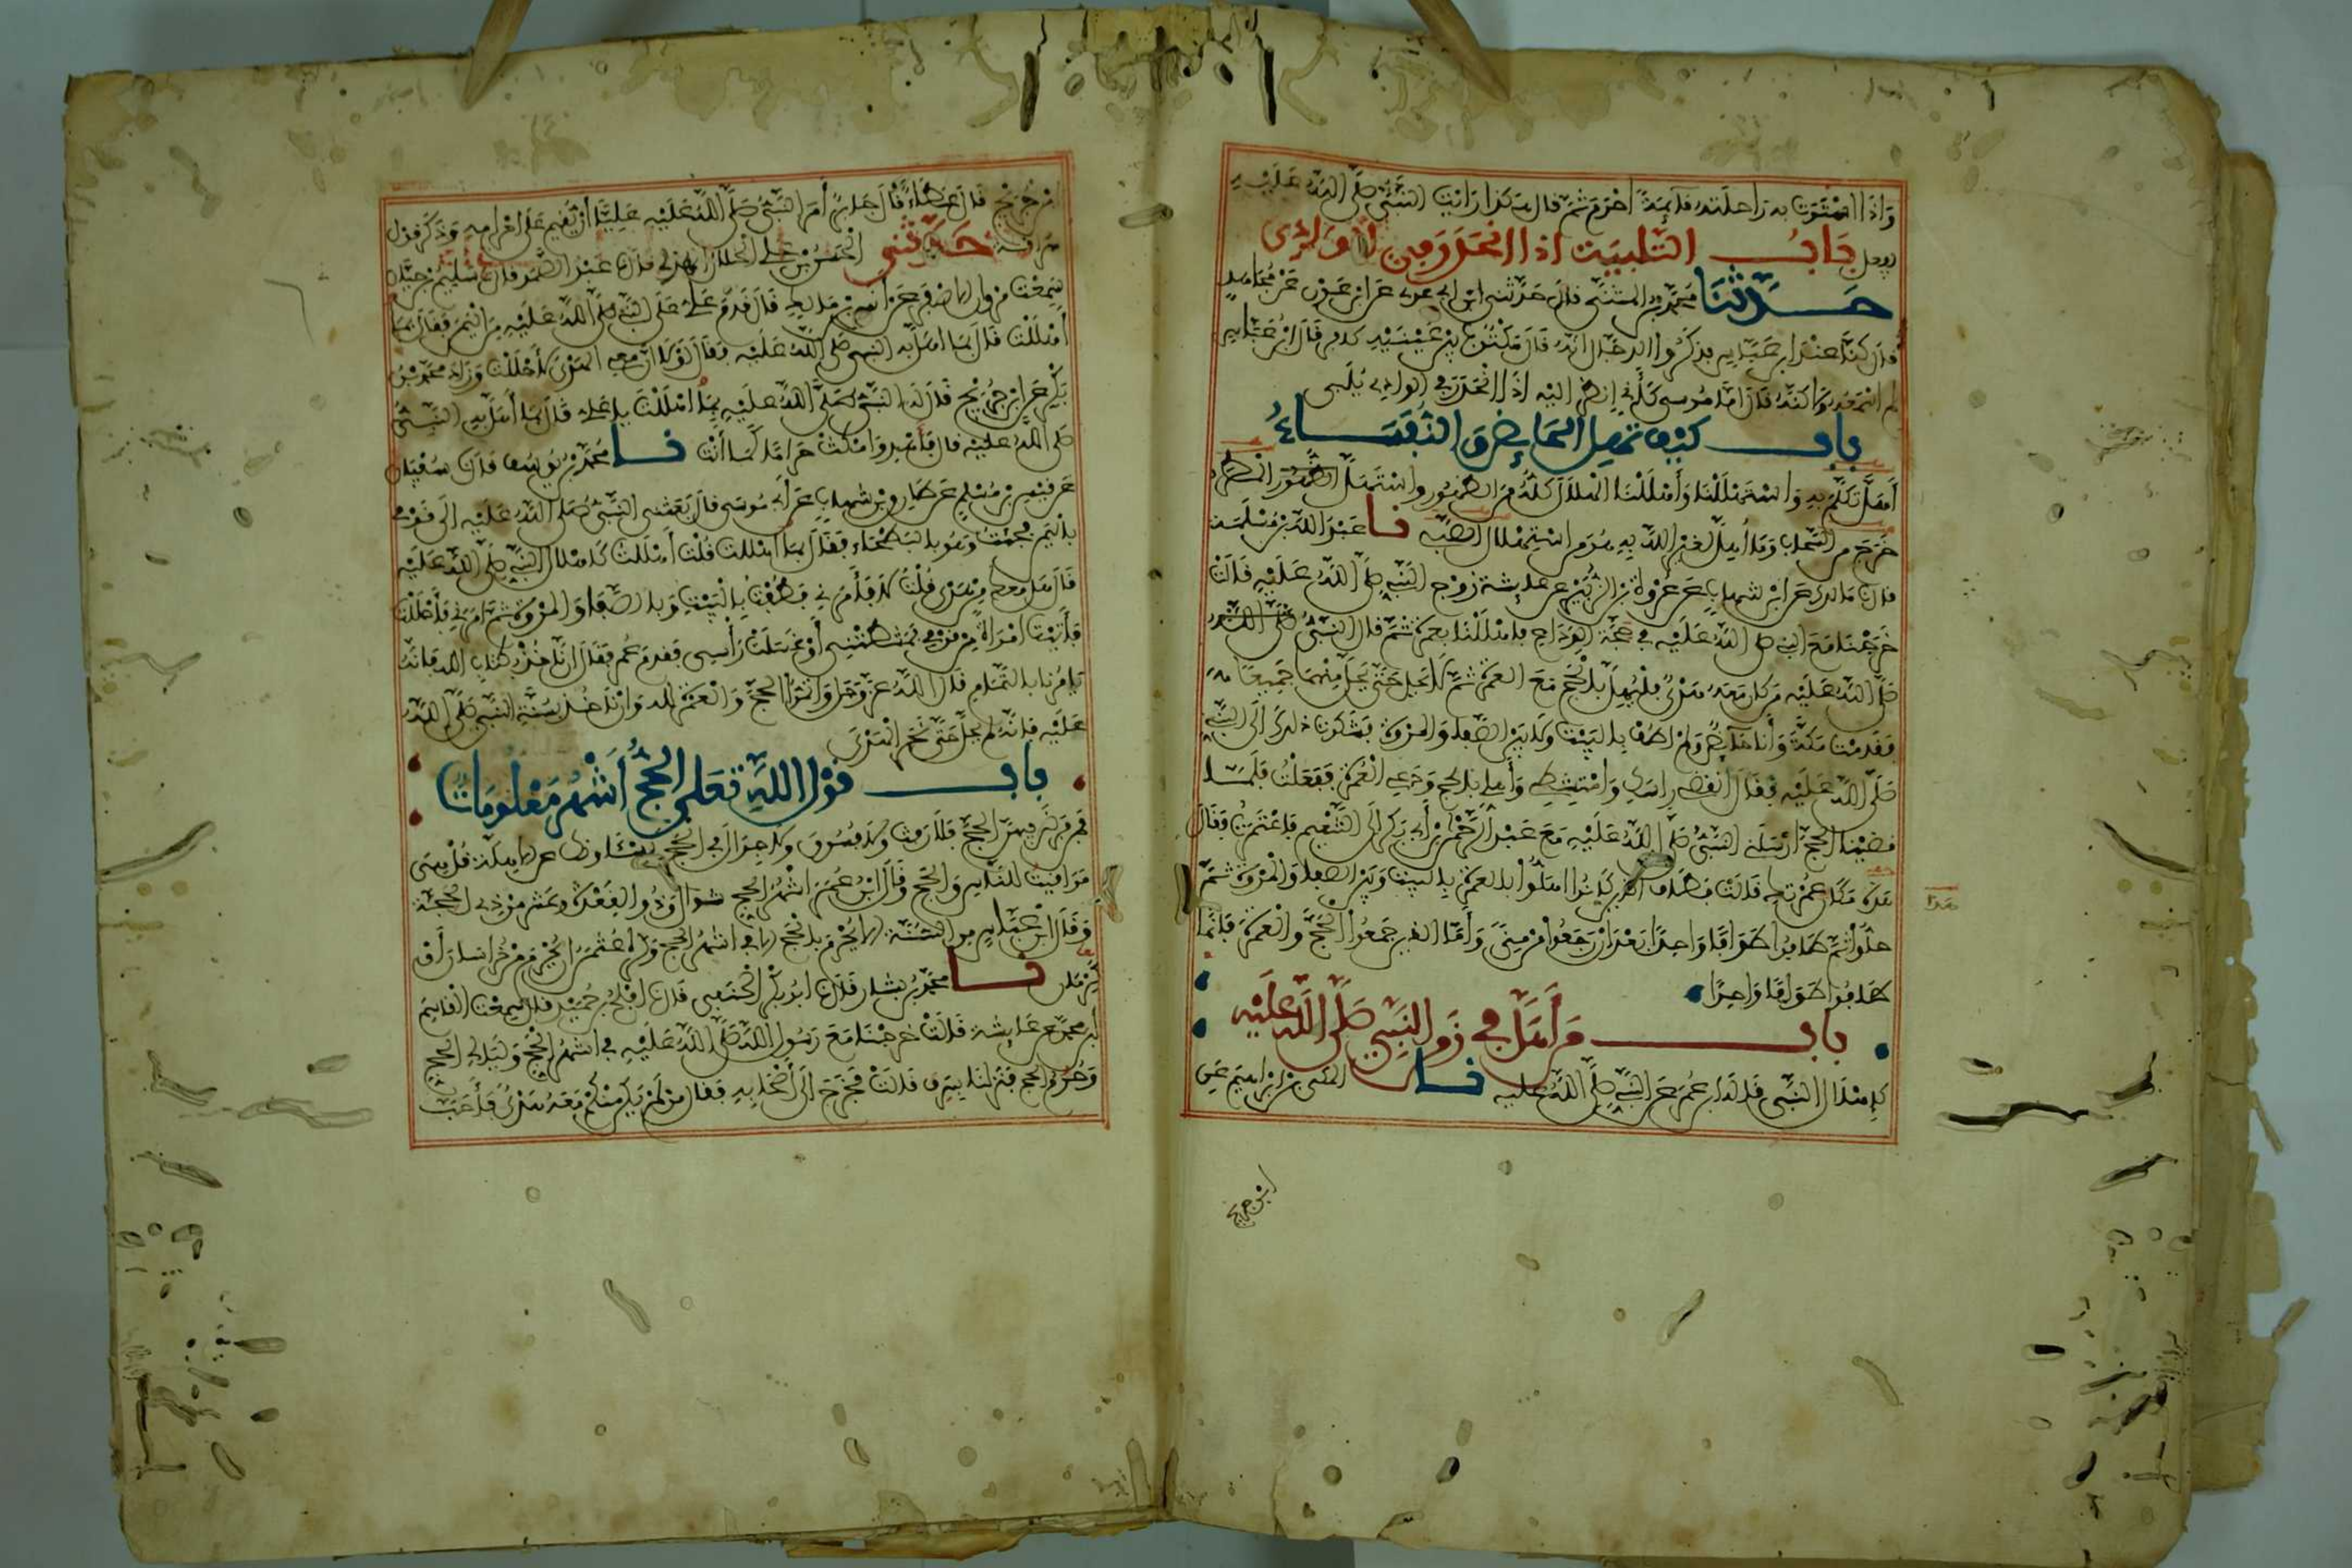 وَاِذَا اسْتَوَتْ بِه رَاحلَته قآيمةً احْرَم ثمَّ قال هَكذا رَايْتُ النَّبِيَّ صَلَّى اللَّهُ عَلَيْهِ
يفعل بَابُ التلبيَة اذا انحَدَرَ مِن الوَادِى
حَدَّثَنَا مُحَمَّد بن المثنَّى قال حَدَّثني ابن ابى عدى عَن ابن عَوْن عَنْ مُجَاهِدٍ
قال كنَّا عنْد ابن عبَّاسٍ فذكَرُوا الدجَّال انهُ قالَ مَكْتُوبٌ بَيْنَ عَيْنَيْهِ كافر قَالَ ابنُ عَبَّاسٍ
لم اسْمَعه وَلكنَّهُ قَالَ امَّا مُوسى كَأنِّى انظُر اليْه اذَا انْحَدَرَ فى الوادى يُلَبِّى
باب كيْف تهِل الحَائِض وَ النُّفَسَاءُ
أهَلَّ تكَلَّم بِهِ وَاسْتَهْلَلْنا وَأهْلَلْنَا الهْلَالَ كلُّهُ مِنَ الظهُور وَاسْتَهَلَّ المَطَر
خَرَجَ من السَّحَاب وَمَا أُهِلَّ لغَيْر اللَّه بِهِ هُوَ مِن اسْتِهْلَال الصَّبِىِّ نا عَبْدُ اللَّه بْن مَسْلَمَة
قال نا مَالك عَن ابْن شهابٍ عَن عُرْوَةَ بْن الزُّبَيْر عن عايشة زَوْج النَّبِيِّ صَلَّى اللَّهُ عَلَيْهِ قَالَتْ
خَرَجْنَا مَعَ النبى صَلَّى اللَّهُ عَلَيْهِ فى حَجَّة الوَدَاع فاهْلَلْنَا بعمرَة ثمَّ قال النَّبِيُّ
صَلَّى اللَّهُ عَلَيْه مَن كان مَعَهُ هَدْىٌ فَلْيُهِلَّ بالْحَجِّ مَعَ العمْرَة ثمَّ لَا يَحِلّ حَتَّى يَحِلَّ مِنْهُمَا جَمِيعًا
فقَدِمْت مَكةَ وَأَنَا حَآئِضٌ وَلَمْ اطُفْ بالبَيْتِ وَلَا بَيْنَ الصَّفَا وَالمَرْوَة فشَكَوْت ذلك الَى النَّبِيِّ
صَلَّى اللَّهُ عَلَيْهِ فقَالَ انْقُضِى رَاسَك وَامْتَشِطِى وَأَهِلى بالحج وَدَعِى الْعُمْرَةَ ففَعَلْتُ فَلَمَّا
قضَيْنا الحجَّ ارْسَلَنى النَّبِيُّ صَلَّى اللَّهُ عَلَيْهِ مَعَ عَبْد الرَّحْمَن بْن أَبِى بَكر الى التَّنْعِيم فاعْتَمَرْتُ فقَالَ
هَذِه مَكَان عُمْرَتِكِ قَالَتْ فطَافَ الذين كَانُوا اهَلُّوا بالعمْرَة بالبَيْت وَبَيْنَ الصفَا وَالْمَرْوَة ثمَّ
حَلُّوْا ثمَّ طَافُوا طَوَافًا وَاحِدًا بَعْدَ انْ رَجَعُوا مِنْ مِنًى وَأَمَّا الذين جَمَعُوا الْحَجَّ وَالْعمْرَة فَإنَّمَا
طَافُوا طَوَافًا وَاحِدًا
باب مَن أَهَلَّ فِي زَمَن النَّبِيِّ صَلَّى اللَّهُ عَلَيْهِ
كَاهْلَال النَّبِي قَالَهُ ابن عُمَرَ عَن النَّبِيِّ صَلَّى اللَّهُ عليه نا المكى بْن ابْرَاهيمَ عَنِ
ابن جريج
هذا
ابْن جُرَيْج قَالَ عَطَاءٌ قَالَ جَابرٌ أَمَرَ النَّبِيُّ صَلَّى اللَّهُ عَلَيْهِ عَلِيًّا أَنْ يُقِيمَ عَلَى احْرَامِهِ وَذَكَرَ قَوْلَ
سُرَاقة حَدَّثَنِي الحَسَنُ بْن على الخلال الهذلى قال نا عَبْدُ الصَّمَد قال نا سَلِيمُ بْن حَيَّان
سَمِعْت مَرْوَان الاصْفَر عَنْ انَس بْن مَالِك قالَ قَدِمَ عَلى عَلَى النَّبِيِّ صَلَّى اللَّهُ عَلَيْهِ مِنَ اليَمَنِ فقَالَ بِمَا
أهْلَلْتَ قَالَ بِمَا اهَلَّ به النبى صَلَّى اللَّهُ عَلَيْه فقَالَ لَوْلَا انَّ معِى الهَدْىَ لَأَحْلَلْت وَزَادَ مُحَمَّد بْنُ
بَكْرٍ عَن ابْن جُرَيْج قَالَ لَه النَّبِيُّ صَلَّى اللَّهُ عَلَيْهِ بِمَا اهْلَلْتَ يا عَلىّ قَالَ بِمَا أَهَلَّ بِهِ النَّبِيُّ
صَلَّى اللَّهُ عَلَيْهِ قال فَاهْدِ وَامْكُثْ حَرَامًا كَمَا أَنْتَ نا مُحَمَّد بْن يُوسُف قال نا سُفْيَان
عَن قَيْسِ بْن مُسْلِمٍ عَن طَارِق بْن شهَابٍ عَن أَبى مُوسَى قالَ بَعَثَنى النَّبِيُّ صَلَّى اللَّهُ عَلَيْهِ الَى قَوْمى
بالْيَمَن فَجِئْتُ وَهُو بالبَطْحَاء فقَالَ بِمَا اهْلَلت قُلْتُ أَهْلَلْت كَاهْلَال النَّبِيِّ صَلَّى اللَّهُ عَلَيْهِ
قَالَ هَل مَعَكَ مِنْ هَدْىٍ قُلْتُ لَا فَأَمَرَنى فَطُفْتُ بِالْبَيْتِ وَبالصَّفَا وَالْمَرْوَة ثمَّ أمَرَنى فَأَحْلَلْتُ
فَأَتَيْت امْرَاةً مِنْ قَوْمى فَمَشَطَتْنِى أَوْ غَسَلَتْ رَأْسِى فقدِمَ عُمر فقَالَ ان نَاخُذْ بِكتَاب الله فَانَّهُ
يَامُرُنَا بالتَّمَام قَالَ اللَّهُ عَزَّ وَجَلَّ وَاَتِمُّوا الحجَّ وَالْعمْرَة لله وَانْ نَاخُذ بسُنَّةِ النَّبِيِّ صَلَّى اللَّهُ
عَلَيْهِ فإنَّه لم يَحِلَّ حَتَّى نَحَرَ الهَدْىَ
باب قَوْل اللَّهِ تعَلى الحَجُّ أَشْهُرٌ مَعْلُومَاتٌ
فمَن فَرَضَ فِيهِنَّ الحجَّ فَلَا رَفَثَ وَلَا فُسُوقَ وَلَا جِدَالَ فى الحَجّ يَسْئلونَكَ عَن الاهِلَّة قُلْ هِىَ
مَوَاقِيتُ للنَّاسِ وَالحَجِّ وَقَالَ ابْنُ عُمَرَ اشْهُرُ الحجِّ شوَّال وَذُو القِعْدَة وَعَشْر مِنْ ذِى الحجَّة
وَقَالَ ابْن عَبَّاسٍ من السُنَّة الا يُحْرِمَ بالْحَجّ الا فى اشهُر الحجّ وَكرِهَ عُثْمَنُ انْ يُحْرِمَ مِنْ خُرَاسَانَ أَوْ
كِرْمَان نا محَمَّد بْن بَشار قَالَ نا ابُو بَكْرٍ الْحَنَفِى قَالَ نا افْلحُ بْن حُمَيْد قال سَمعْت القاسِمَ
ابْن محمَّد عَن عَايِشة قَالَتْ خرَجْنَا مَعَ رَسُول اللَّه صَلَّى اللَّهُ عَلَيْهِ فى اشْهُر الْحَجّ وَلَيَالى الحجّ
وَحُرُم الحجّ فَنَزلْنَا بِسَرِف قَالَتْ فَخَرَجَ الَى أَصْحَابِهِ فقَالَ مَنْ لَمْ يَكُن مِنْكُمْ مَعَهُ هَدْىٌ فَأَحَبَّ